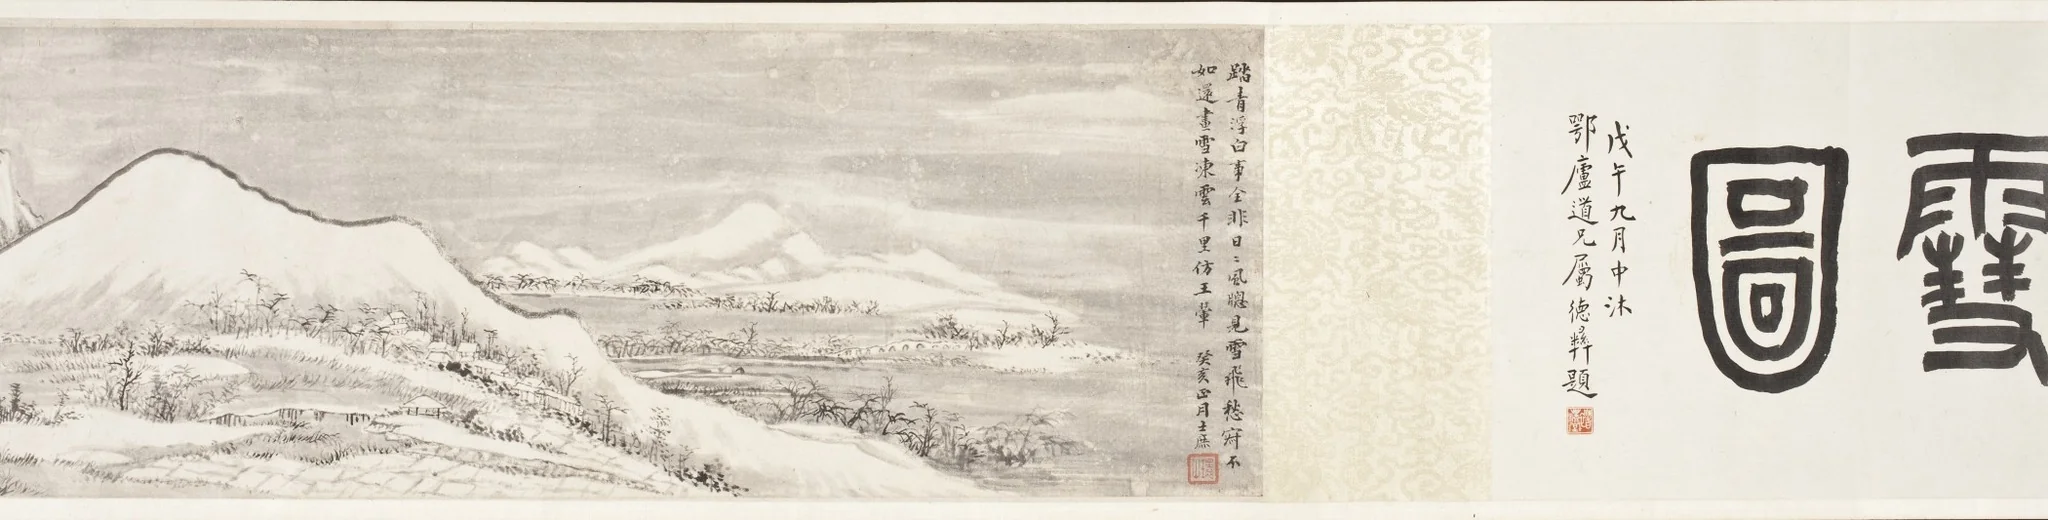 雪
圖
戊午九月中沐
鄂廬道兄屬德彝題
踏青浮白事全非日〻風牕見雪飛愁窘不
如還畫雪凍雲千里仿王翬
癸亥正月士